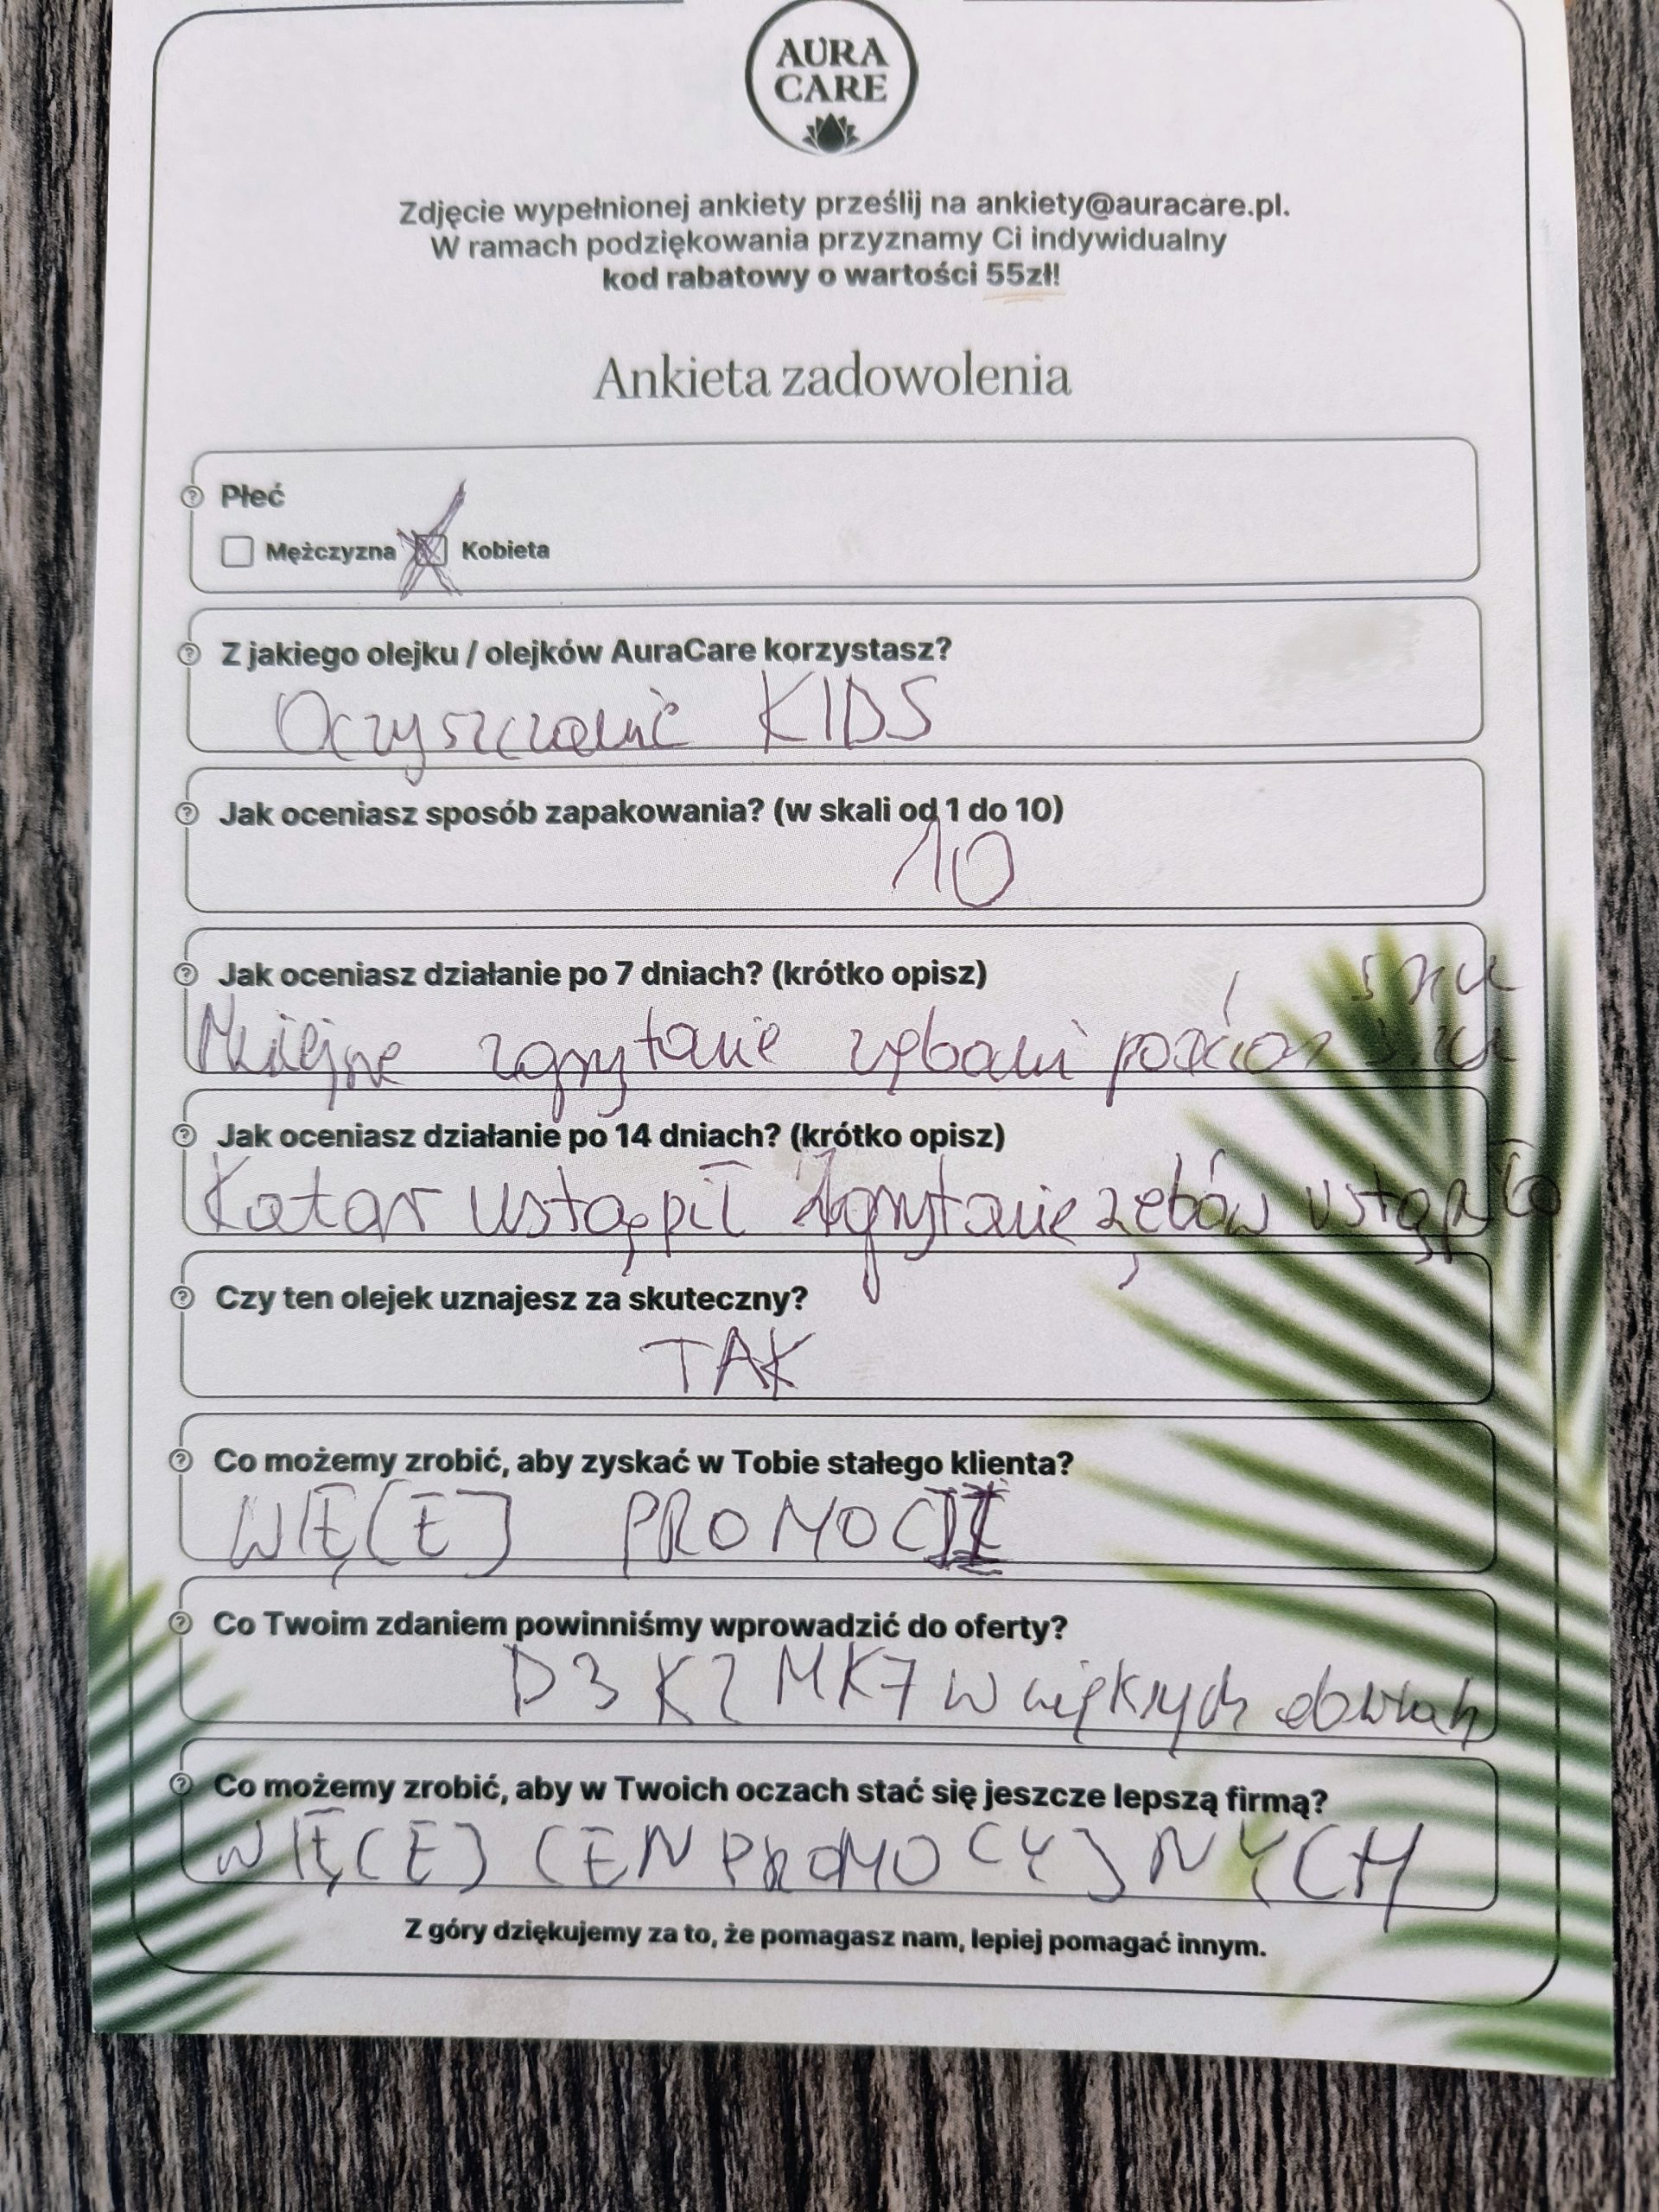 AURA
CARE
Zdjęcie wypełnionej ankiety prześlij na ankiety@auracare.pl.
W ramach podziękowania przyznamy Ci indywidualny
kod rabatowy o wartości 55zł!
Ankieta zadowolenia
Płeć
Mężczyzna Kobieta
Z jakiego olejku / olejków AuraCare korzystasz?
Oczyszczanie KIDS
Jak oceniasz sposób zapakowania? (w skali od 1 do 10)
10
Jak oceniasz działanie po 7 dniach? (krótko opisz)
snu
Mniejsze zgrytanie zębami podczas snu
Jak oceniasz działanie po 14 dniach? (krótko opisz)
Katar ustąpił zgrytanie zębów ustąpiło
Czy ten olejek uznajesz za skuteczny?
TAK
Co możemy zrobić, aby zyskać w Tobie stałego klienta?
WIĘCEJ PROMOCJI
Co Twoim zdaniem powinniśmy wprowadzić do oferty?
D3 K2 MK7 w większych dawkach
Co możemy zrobić, aby w Twoich oczach stać się jeszcze lepszą firmą?
WIĘCEJ CEN PROMOCYJNYCH
Z góry dziękujemy za to, że pomagasz nam, lepiej pomagać innym.